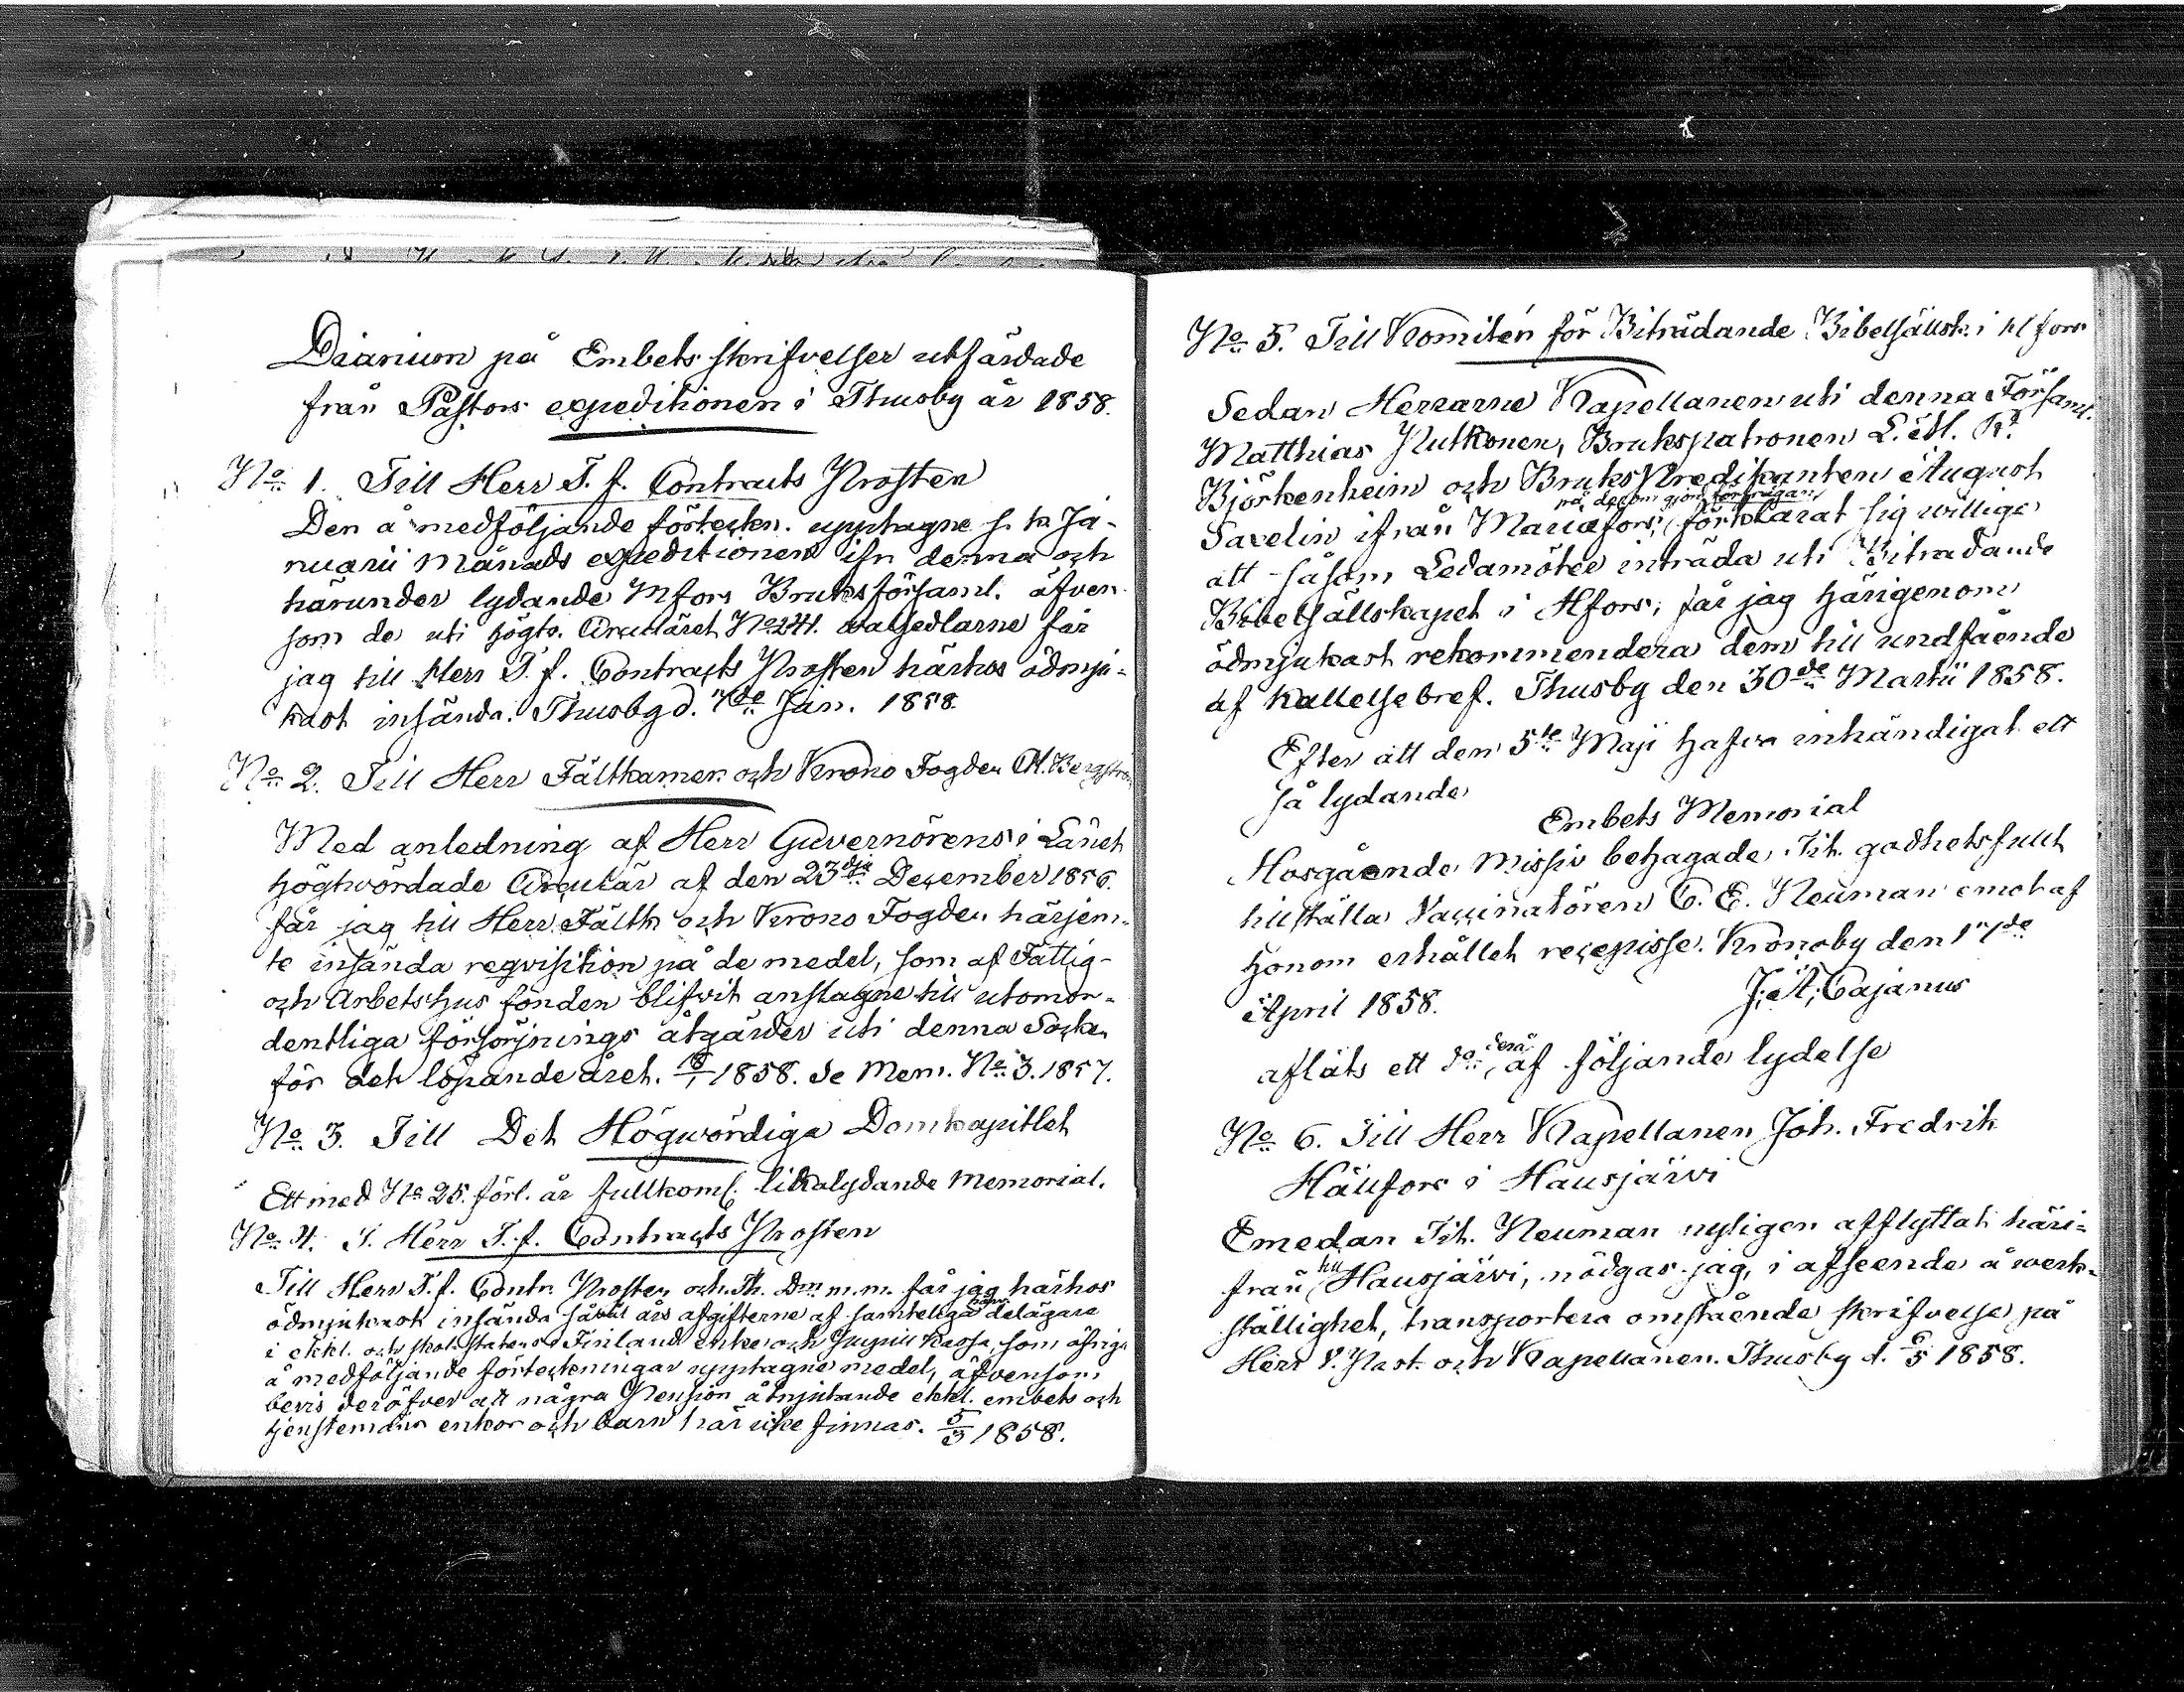 Diarium på Embets skrifvelser utfärdade
från Pastors expeditionen i Thusby år 1858.
No 1. Till Herr T. f. Contracts Prosten
Den å medföljande förteckn. upptagne s. k. Ja-
nuarii Månads expeditionen ifr denna och
härunder lydande Mfors Bruksförsaml. äfven
som de uti högtv. Circuläret No 241. valsedlarne får
jag till Herr T. f. Contracts Prosten härhos ödmju-
kast insända. Thusby d. 7de Jan. 1858.
No 2. Till Herr Fältkamer. och Krono Fogden Bergström
Med anledning af Herr Guvernörens i Länet
högtvördade Circulär af den 23dje December 1856.
får jag till Herr Fältk och Krono Fogden härjem-
te insända reqvisition på de medel, som af Fattig-
och Arbetshus fonden blifvit anslagne till utomor-
dentliga försörjnings åtgärder uti denna Socken
för det löpande året. 1858. Se Mem. No 3. 1857.
No 3. Till Det Högwördiga Domkapitlet
Ett med No 25. förl. år fullkoml. likalydande Memorial.
No 4. T. Herr T. f. Contracts Prosten
Till Herr T. f. Contr. Prosten och Th. Dr m. m. får jag härhos
ödmjukast insända såväl års afgifterne af samteliga delägare
i ekkl. och skol. Statens i Finland enke och Pupill Kassa, som öfriga
å medföljande förteckningar upptagne medel, äfvensom
bevis deröfver att några Pension åtnjutande ekkl. embets och
tjenstemäns enkor och barn här icke finnas. 5/3 1858.
No 5. Till Komitén för Biträdande Bibelsällsk. i Hfors
Sedan Herrarne Kapellanen uti denna Församl.
Matthias Putkonen, Brukspatronen L. M. Rr
Björkenheim och Bruks Predikanten August
på derom gjord förfrågan
Savelin ifrån Mariæfors, förklarat sig willige
att såsom Ledamöter inträda uti Biträdande
Bibelsällskapet i Hfors; får jag härigenom
ödmjukast rekommendera dem till undfående
af Kallelsebref. Thusby den 30de Martii 1858.
Efter att den 5te Maji hafva inhändigat ett
så lydande
Embets Memorial
Hosgående Missiv behagade Tit. godhetsfullt
tillställa Vaccinatören C. E. Neuman emot af
honom erhållet recepisse. Kronoby den 17de
April 1858. J. A. Cajanus
aflåts ett do derå af följande lydelse
No 6. Till Herr Kapellanen Joh. Fredrik
Hällfors i Hausjärvi
Emedan Tit. Neuman nyligen afflyttat häri-
från till Hausjärvi, nödgas jag, i afseende å werk-
ställighet, transportera omstående skrifvelse på
Herr V. Past. och Kapellanen. Thusby d. 6/5 1858.